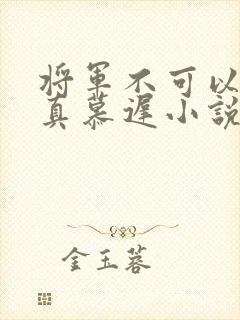 将军不可以
真慕遲小説
金玉蓉